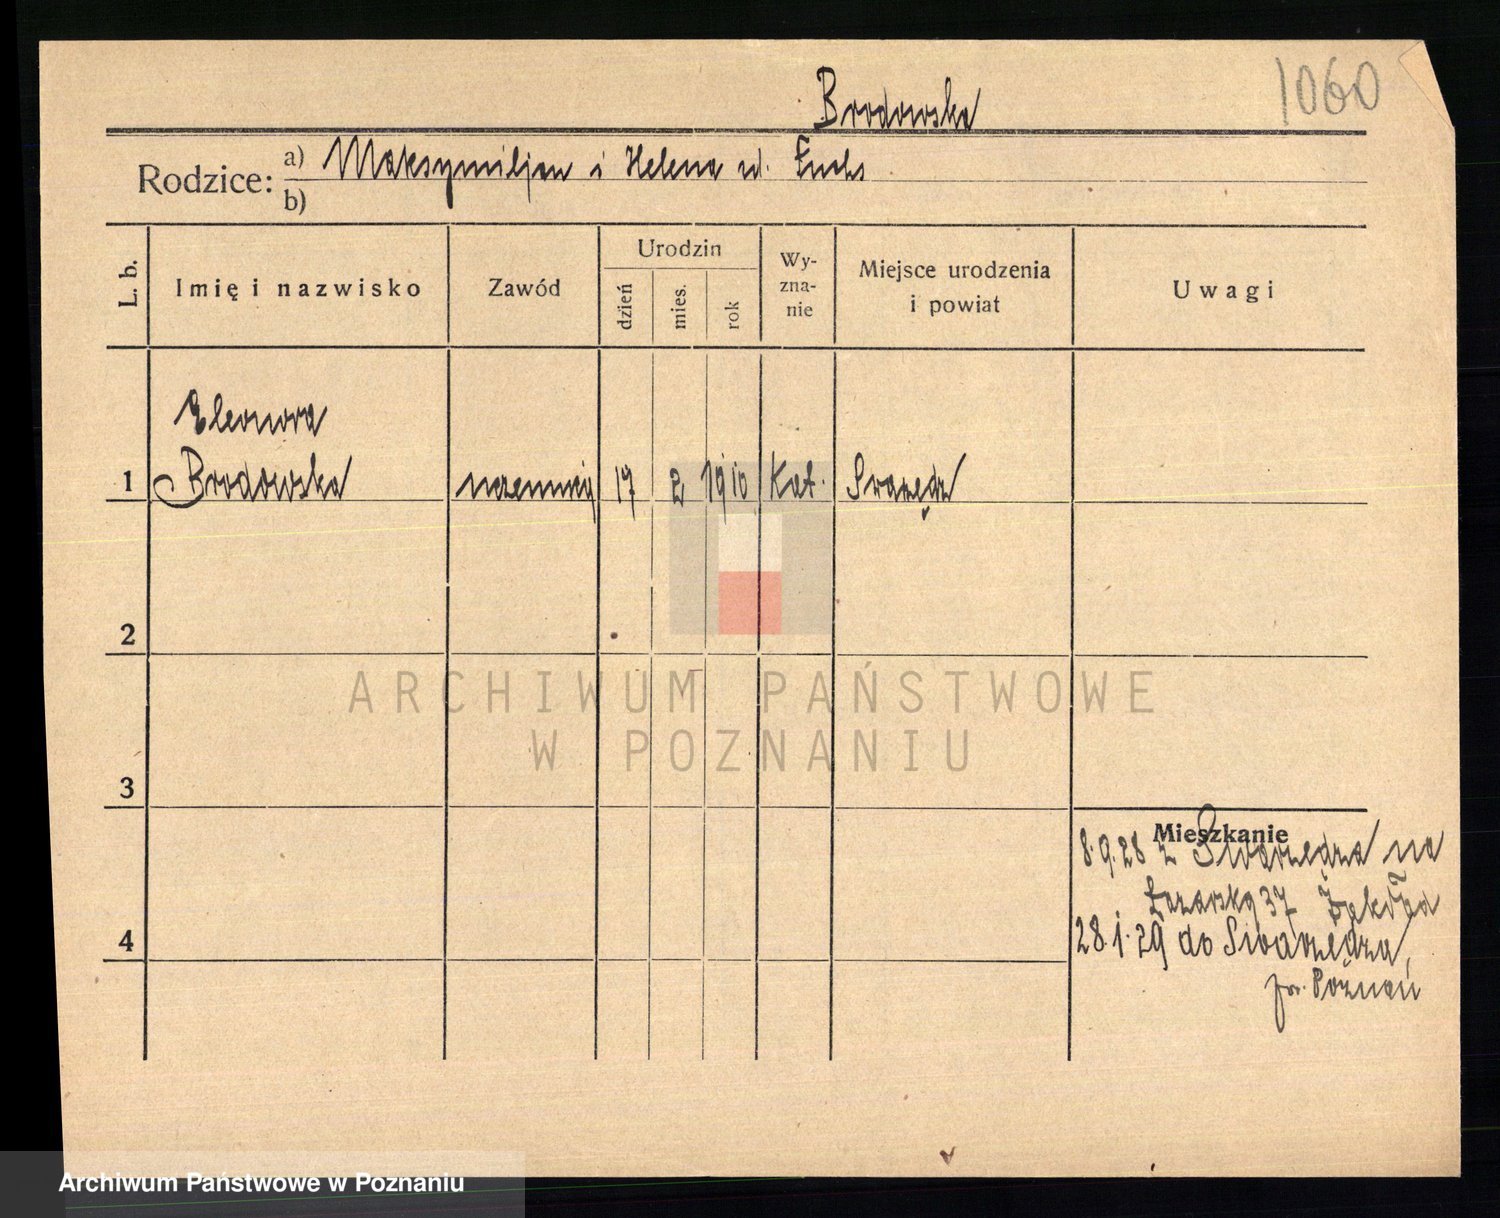 Brodowska
1060
Rodzice: a) Maksymiljan i Helena ur. Fuchs
b)
L. b.
Imię i nazwisko
Zawód
Urodzin
dzień
mies.
rok
Wy-
zna-
nie
Miejsce urodzenia
i powiat
Uwagi
Eleonora
1 Brodowska 17 2 1910 Kat.
2
ARCHIWUM PAŃSTWOWE
W POZNANIU
3
Mieszkanie
8.9.28 z Swarzędza na
37
4
28.1.29 do Swarzędza,
Poznań
Archiwum Państwowe w Poznaniu